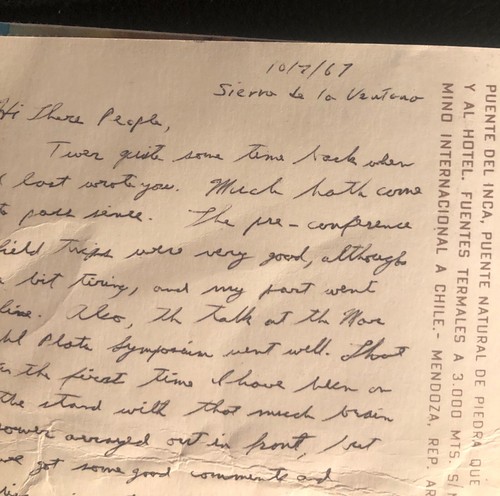 10/7/67
Sierra de la Ventana
Hi There People,
Twer quite some time back when
I last wrote you. Much hath come
to pass since. The pre-conference
field trips were very good, although
a bit tiring, and my part went
fine. Also, th talk at the Mar
del Plata Symposium went well. That
was the first time I have been on
the stand with that much brain
power arrayed out in front, but
we got some good comments and
PUENTE DEL INCA, PUENTE NATURAL DE PIEDRA QUE
Y AL HOTEL. FUENTES TERMALES A 3.000 MTS. S/
MINO INTERNACIONAL A CHILE.- MENDOZA, REP. AR